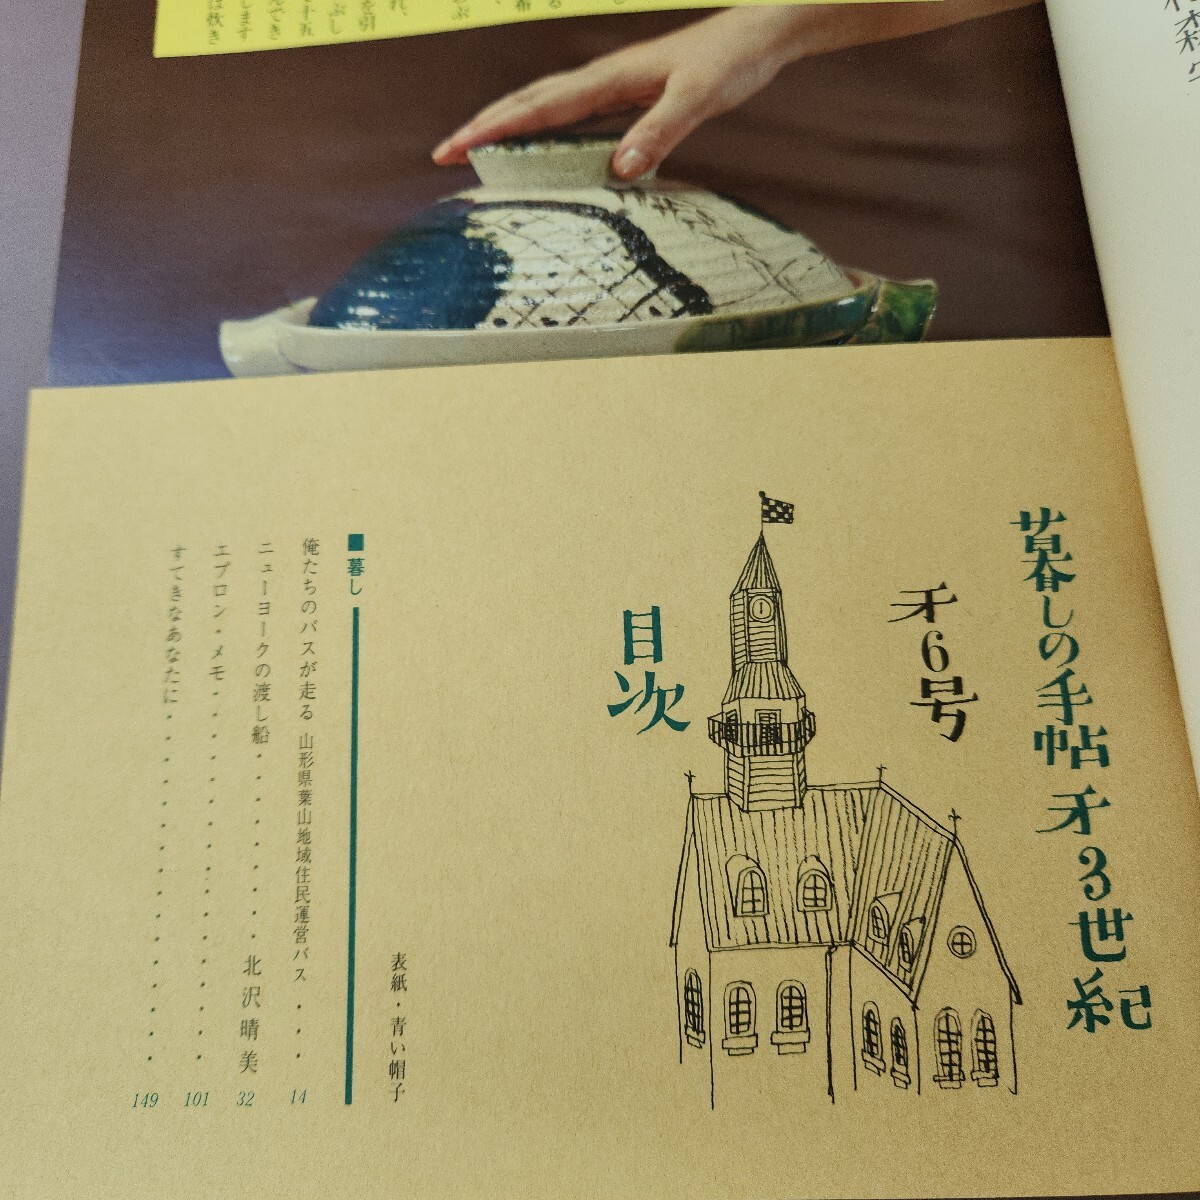 暮しの手帖 才3世紀
才6号
目次
表紙・青い帽子
■暮し
俺たちのバスが走る 山形県葉山地域住民運営バス・・・14
ニューヨークの渡し船・・・・・・・・・北沢晴美 32
エプロン・メモ・・・・・・・・・・・・・・101
すてきなあなたに・・・・・・・・・・・・・149